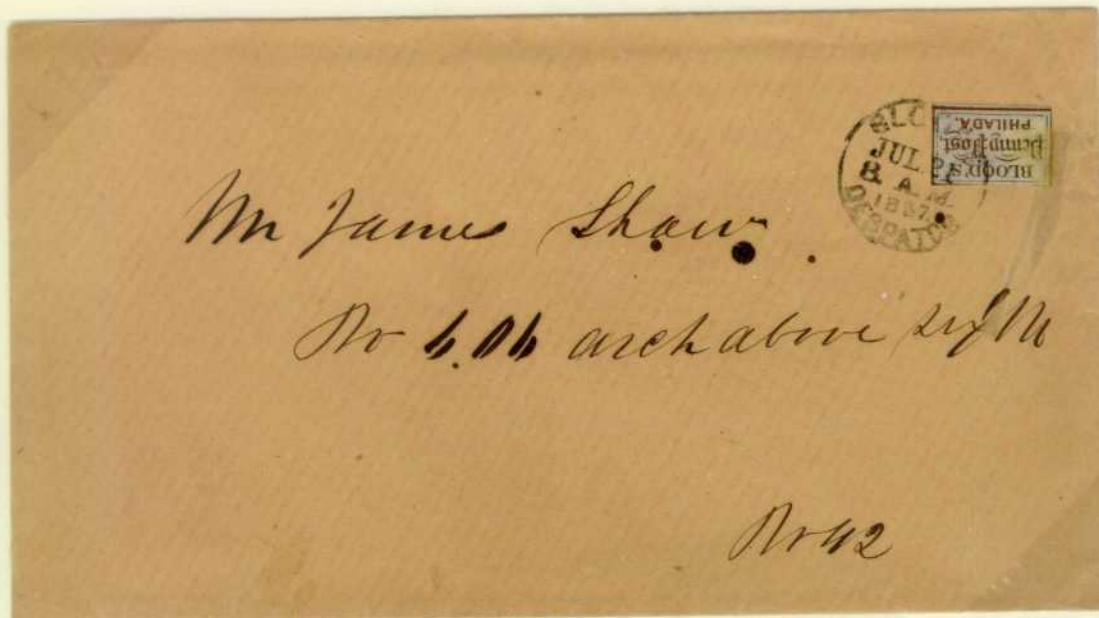 BLOOD'S
Penny Post,
PHILADA.
JUL. 2
8 A.M.
1857
DESPATCH
Mr James Shaw
No 606 arch above sixth
No 42